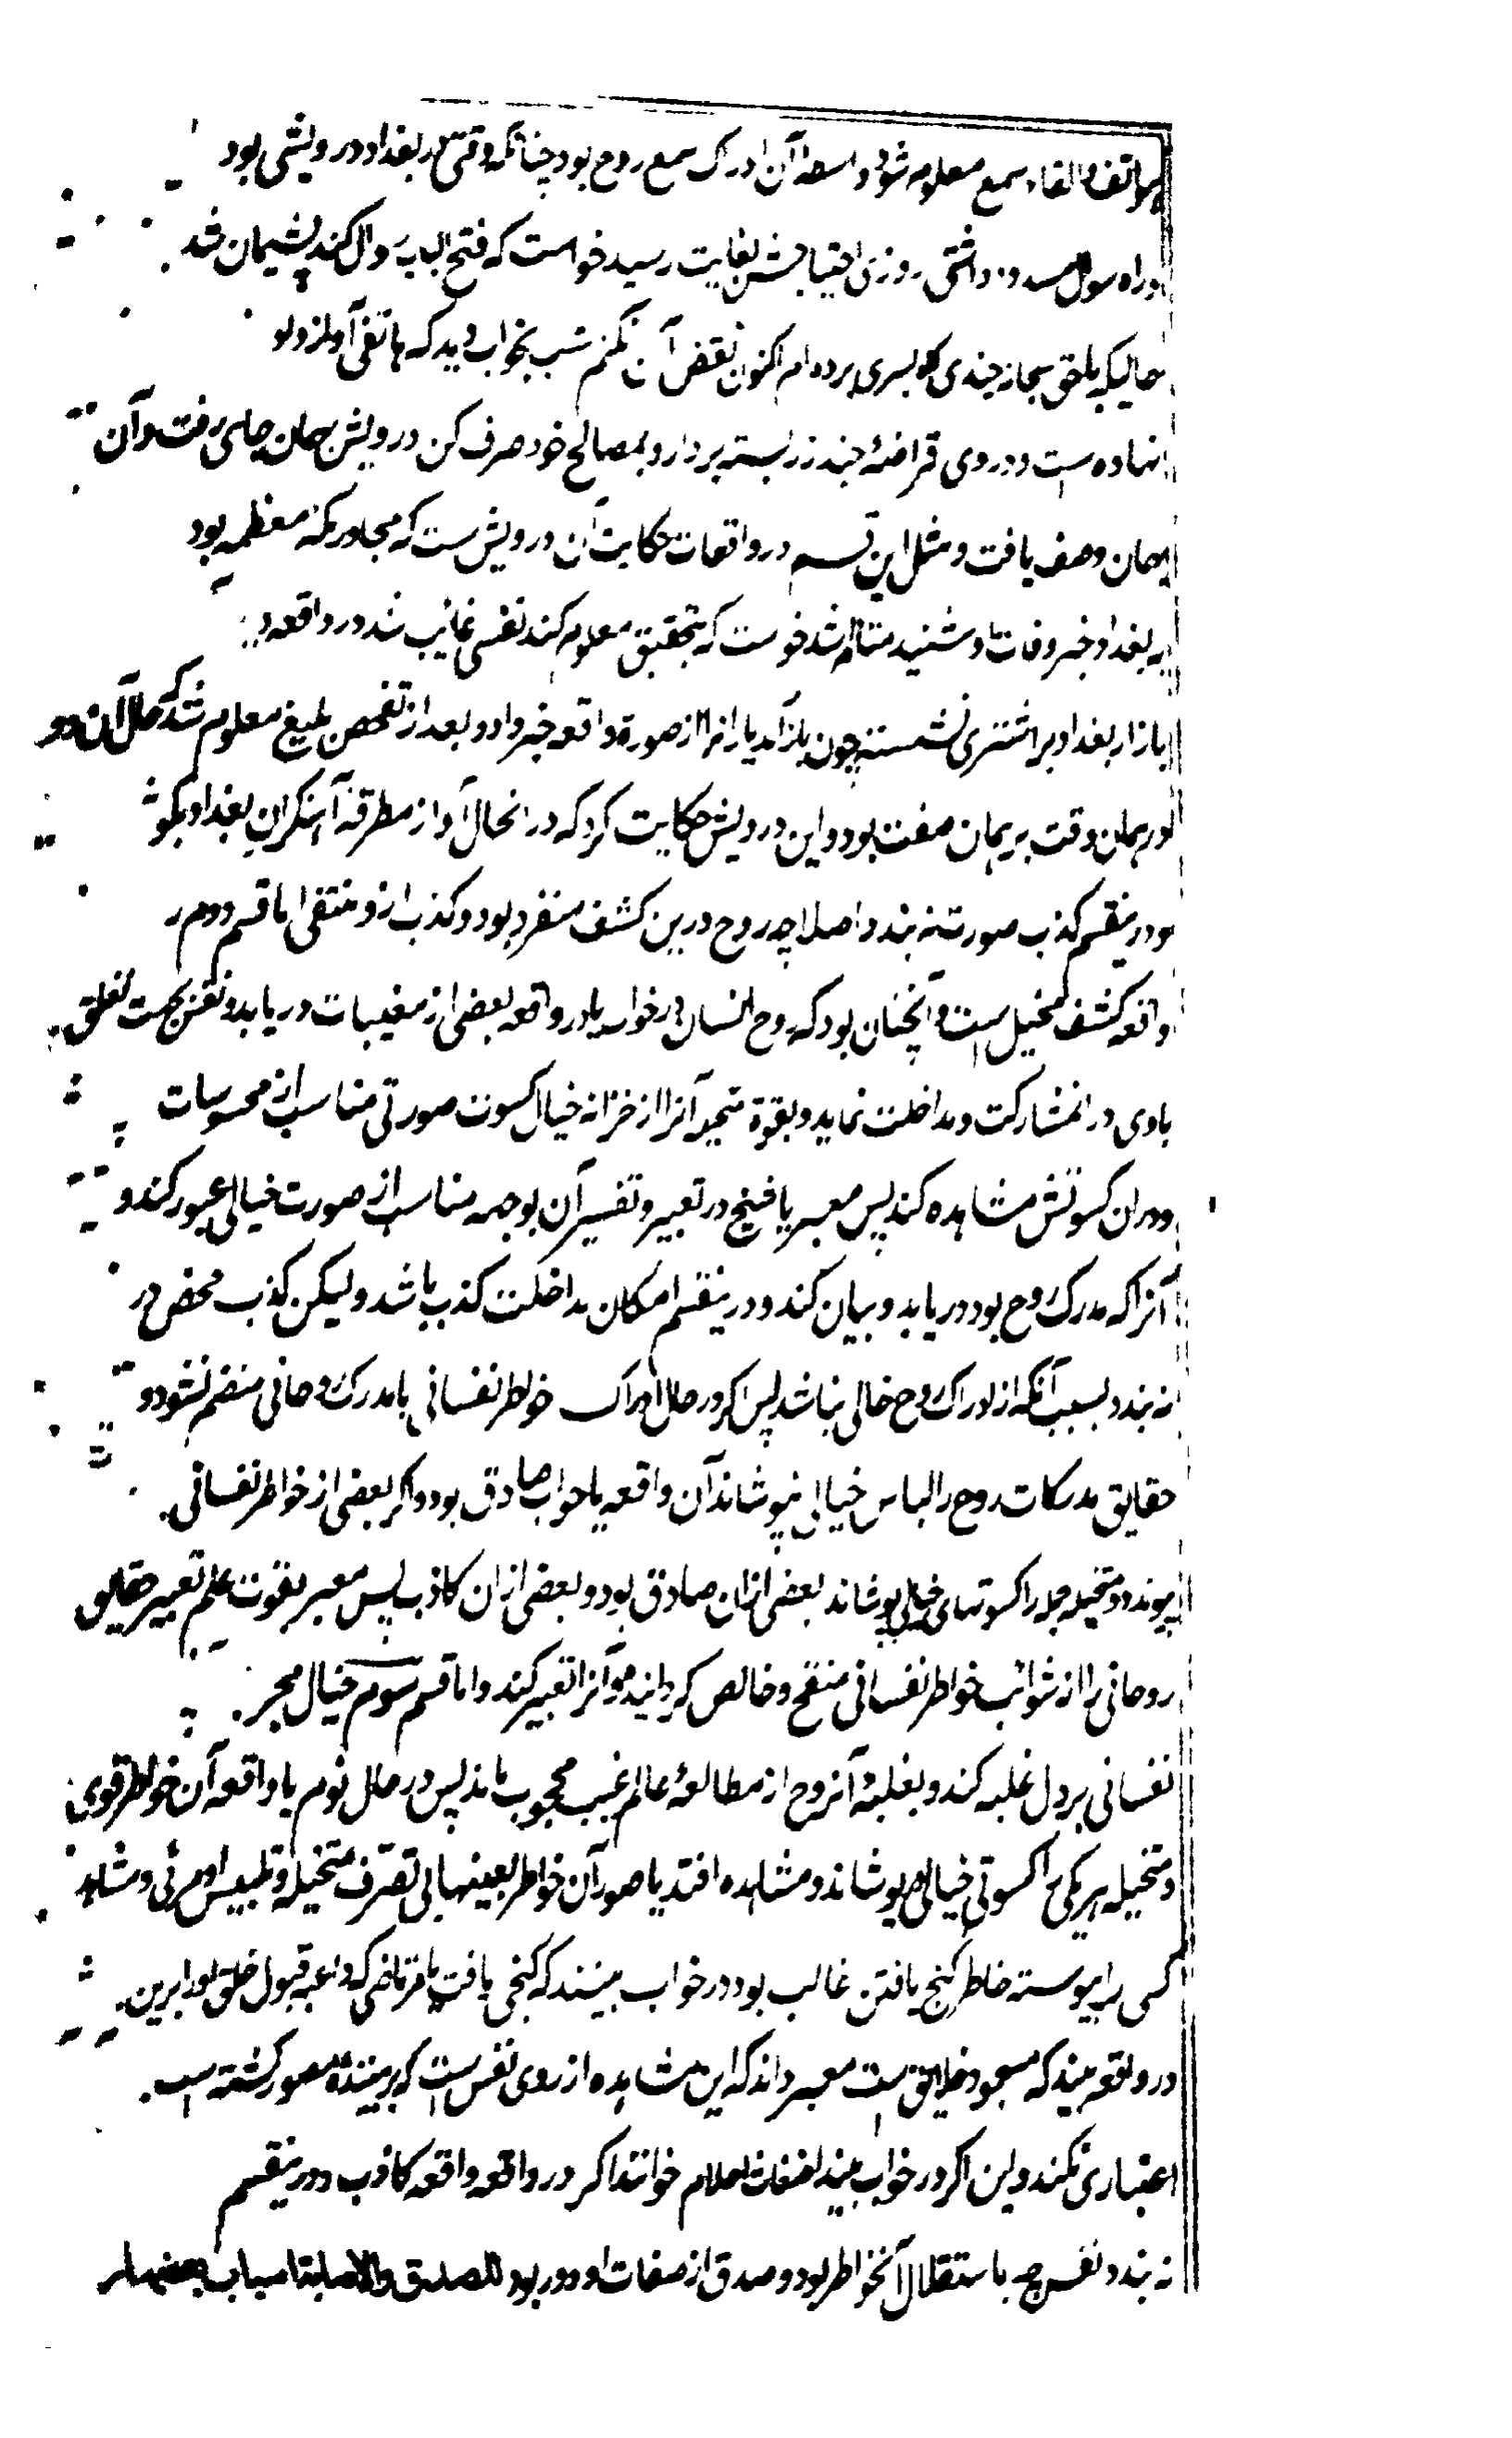 هواتف و القاء سمع معلوم شود واسطه آن ادراک سمع روح بود چنانکه وقتی در بغداد درویشی بود
راه سوال مسدود داشتی روزی احتیاجش بغایت رسید خواست که فتح الباب سوال کند پشیمان شد
حالیکه با حق سبحانه چندی گاه بسر برده ام اکنون نقض آن نکنم شب بخواب دید که هاتفی آواز داد
نهاده است و در وی قراضهٔ چند زر بسته بردار و بمصالح خود صرف کن درویش بدان جای رفت و آن
بدان وصف یافت و مثل این قسم در واقعات حکایت آن درویش ست که مجاور مکه معظمه بود
به بغداد خبر وفات او شنید متالم شد خواست که بتحقیق معلوم کند نفسی غائب شد در واقعه دید
بازار بغداد بر اشتری نشسته چون باز آمد یارانرا از صورة واقعه خبر داد و بعد از تفحص بلیغ معلوم شد که حال آن
در همان وقت بر همان صفت بود و این درویش حکایت کرد که در انحال آواز مطرقهٔ آهنگران بغداد بگوش
و درینقسم کذب صورت نه بندد اصلا چه روح درین کشف منفرد بود و کذب ازو منتفی اما قسم دوم
واقعه کشف مخیل است و آنچنان بود که روح انسان در خواب یا در واقعه بعضی از مغیبات دریابد و نفس بجهت تعلق
با وی در آن مشارکت و مداخلت نماید و بقوة متخیله آنرا از خزانه خیال کسوت صورتی مناسب از محسوسات
و در ان کسوتش مشاهده کند پس معبر یا شیخ در تعبیر و تفسیر آن بوجه مناسب از صورت خیالی عبور کند و
آنرا که مدرک روح بود دریابد و بیان کند و درینقسم امکان مداخلت کذب باشد ولیکن کذب محض در
نه بندد بسبب آنکه از ادراک روح خالی نباشد پس اگر در حال ادراک خواطر نفسانی با مدرک روحانی منضم نشود و
حقایق مدرکات روح را لباس خیالی نپوشاند آن واقعه یا خواب صادق بود و اگر بعضی از خواطر نفسانی
پیوندد و متخیله جمله را کسوتهای خیالی پوشاند بعضی ازان صادق بود و بعضی ازان کاذب پس معبر بقوت علم تعبیر حقایق
روحانی را از شوائب خواطر نفسانی منقح و خالص گرداند و آنرا تعبیر کند و اما قسم سوم خیال مجرد
نفسانی بر دل غلبه کند و بغلبهٔ آن روح از مطالعهٔ عالم غیب محجوب ماند پس در حال نوم یا واقعه آن خواطر قوی
و متخیله هر یکی را کسوتی خیالی پوشاند و مشاهده افتد یا صور آن خواطر بعینها بی تصرف متخیله و تلبیس او مرئی و مشاهد
کسی را پیوسته خاطر گنج یافتن غالب بود در خواب بیند که گنجی یافت یا مرتاضی که داعیه قبول خلق او را برین
در واقعه بیند که مسجود خلایق ست معبر داند که این مشاهده از روی نفس ست که بر بیننده مصور گشته است
اعتباری نکند و این اگر در خواب بیند اضغاث احلام خوانند اگر در واقعه واقعه کاذب و درینقسم
نه بندد نفس چه باستقلال آنخواطر بود و صدق از صفات او دور بود